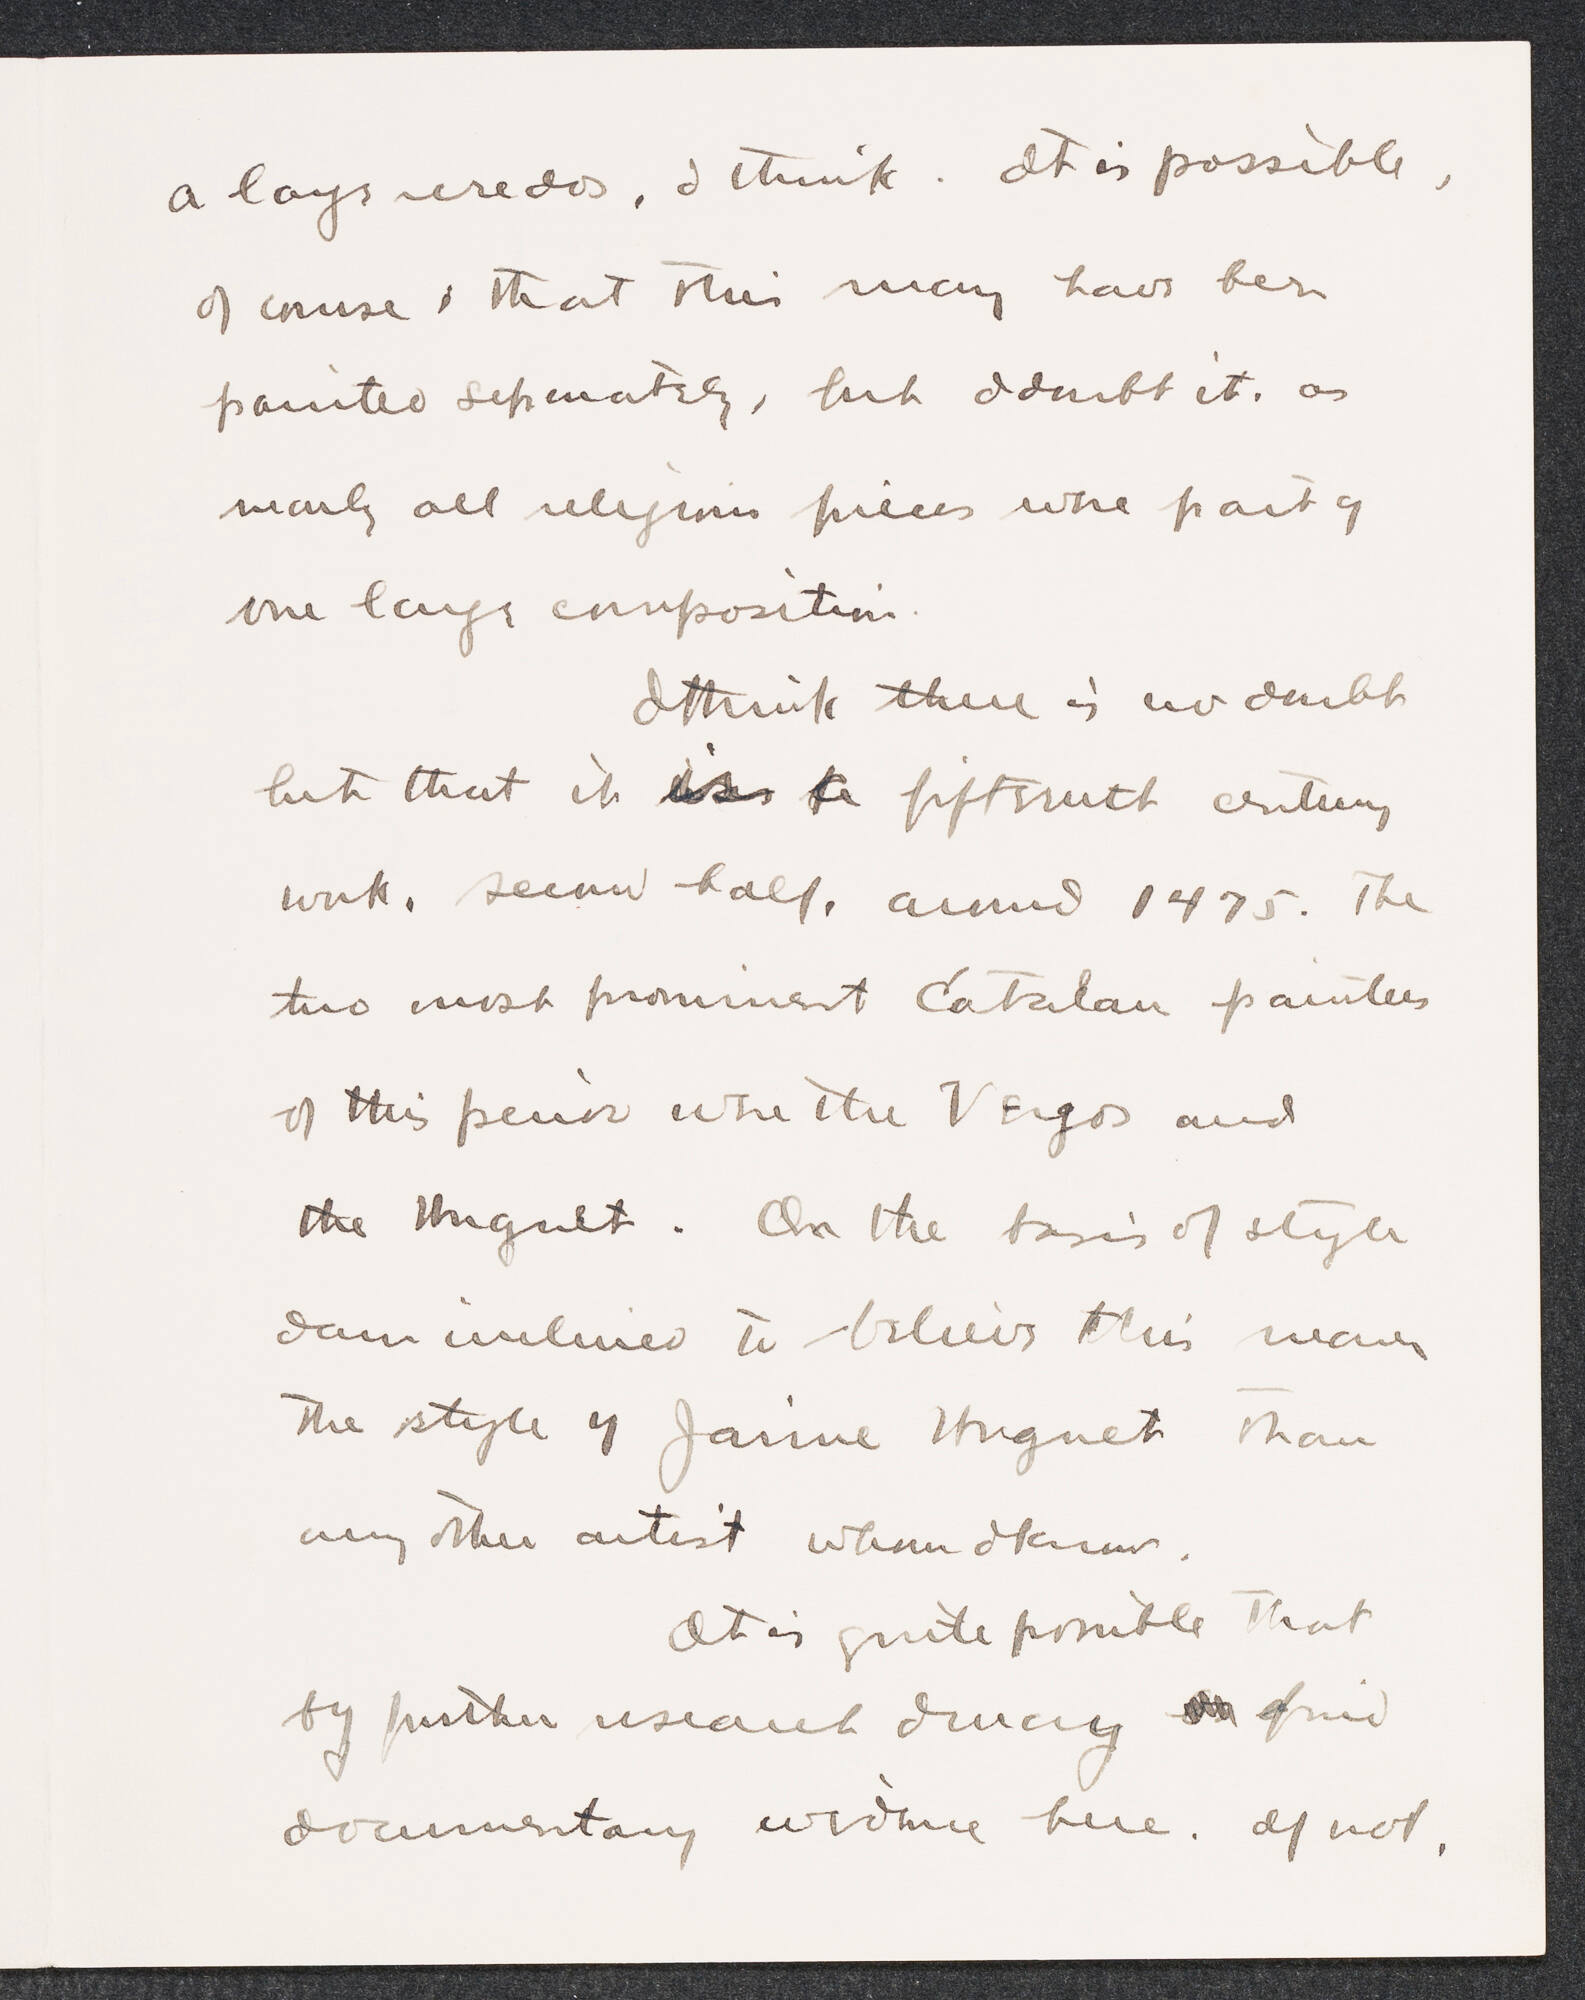 a large reredos, I think. It is possible,
of course, that this may have been
painted separately, but I doubt it. as
nearly all religious pieces were part of
one large composition.
I think there is no doubt
but that it is fifteenth century
work, second half, around 1475. The
two most prominent Catalan painters
of this period were the Vergos and
the Huguet. On the basis of style
I am inclined to believe this nearer
the style of Jaime Huguet than
any other artist whom I know.
It is quite possible that
by further research I may find
documentary evidence here. If not,